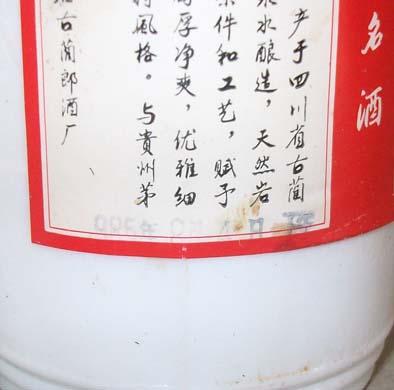 名酒
产于四川省古蔺
泉水酿造，天然岩
条件和工艺，赋予
厚净爽，优雅细
風格。与貴州茅
古蔺郎酒厂